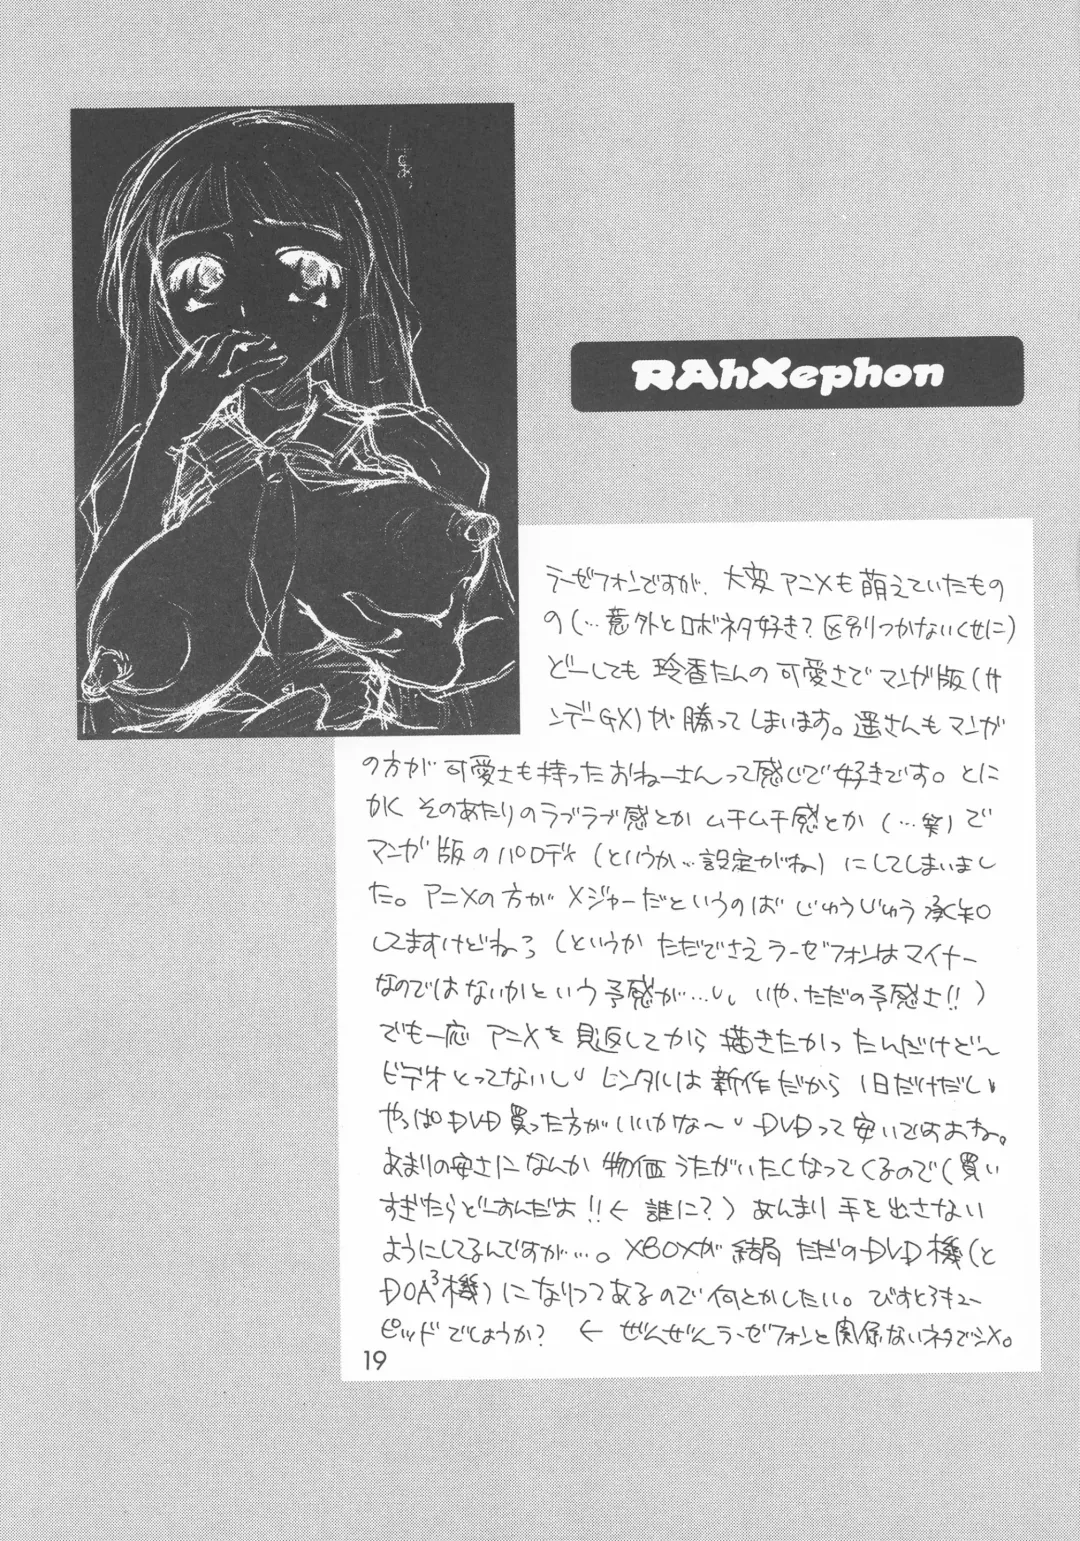 RAhXephon
ラーゼフォンですが、大変アニメも萌えていたもの
の(…意外とロボネタ好き?区別つかないくせに)
どーしても玲香たんの可愛さでマンガ版(サ
ンデーGX)が勝ってしまいます。遥さんもマンガ
の方が可愛さも持ったおねーさんって感じで好きです。とに
かくそのあたりのラブラブ感とかムチムチ感とか(…笑)で
マンガ版のパロディ(というか…設定がね)にしてしまいまし
た。アニメの方がメジャーだというのはじゅうじゅう承知
してますけどねぇ(というかただでさえラーゼフォンはマイナー
なのではないかという予感が…いや、ただの予感さ!!)
でも一応アニメを見返してから描きたかったんだけど〜
ビデオとってないしレンタルは新作だから1日だけだし
やっぱDVD買った方がいいかな〜DVDって安いですよね。
あまりの安さになんか物価うたがいたくなってくるので(買い
すぎたらどーすんだよ!!←誰に?)あんまり手を出さない
ようにしてるんですが…。XBOXが結局ただのDVD機(と
DOA3機)になりつつあるので何とかしたい。びすとろきゅー
ピッドでしょうか? ← ぜんぜんラーゼフォンと関係ないネタでシメ。
19